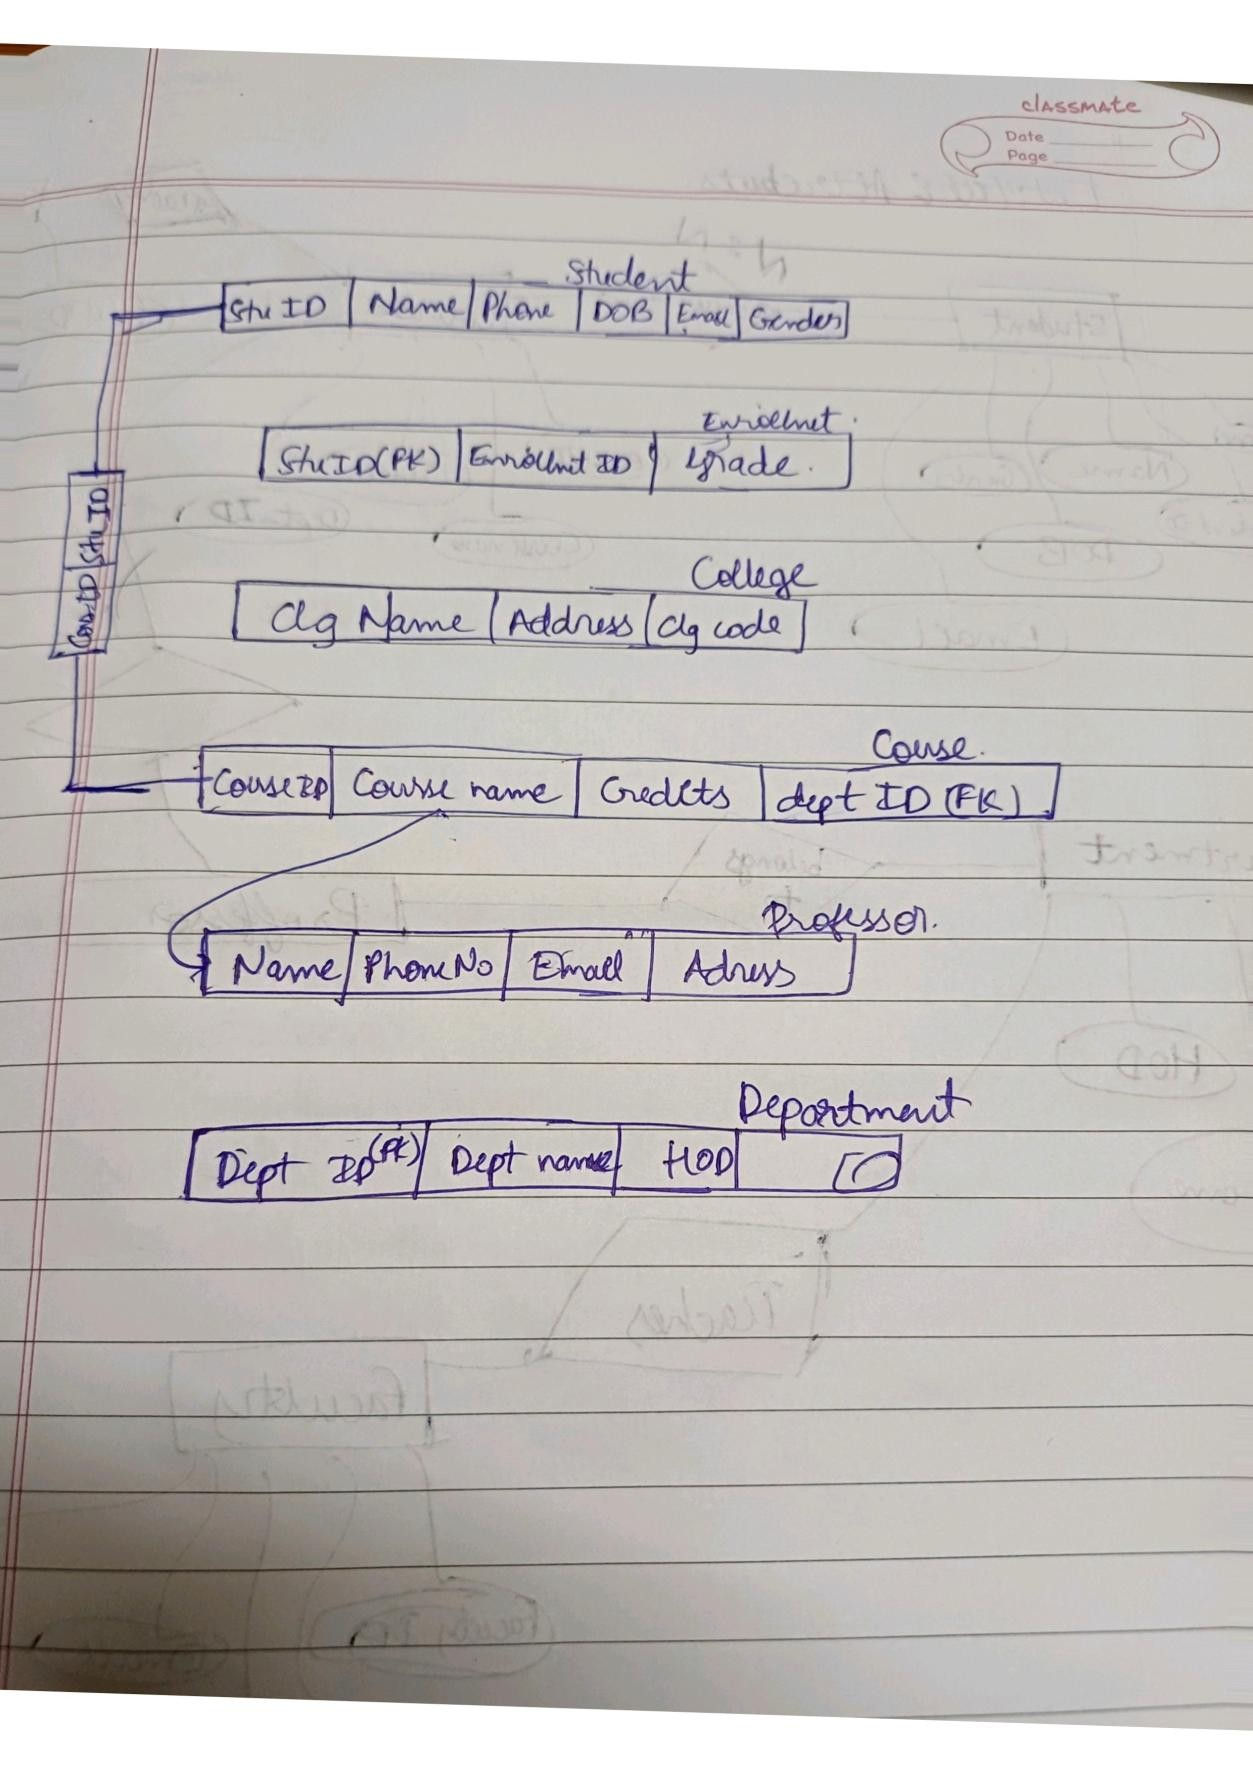 classmate
Date
Page
Student
Stu ID Name Phone DOB Email Gender
Enrollnet.
StuID(PK) Enrollnt ID Grade.
Stu ID
CouID
College
Clg Name Address Clg code
Couse.
CouseID Course name Credits dept ID (FK)
Professor.
Name PhoneNo Email Adress
Department
Dept ID(PK) Dept name HOD